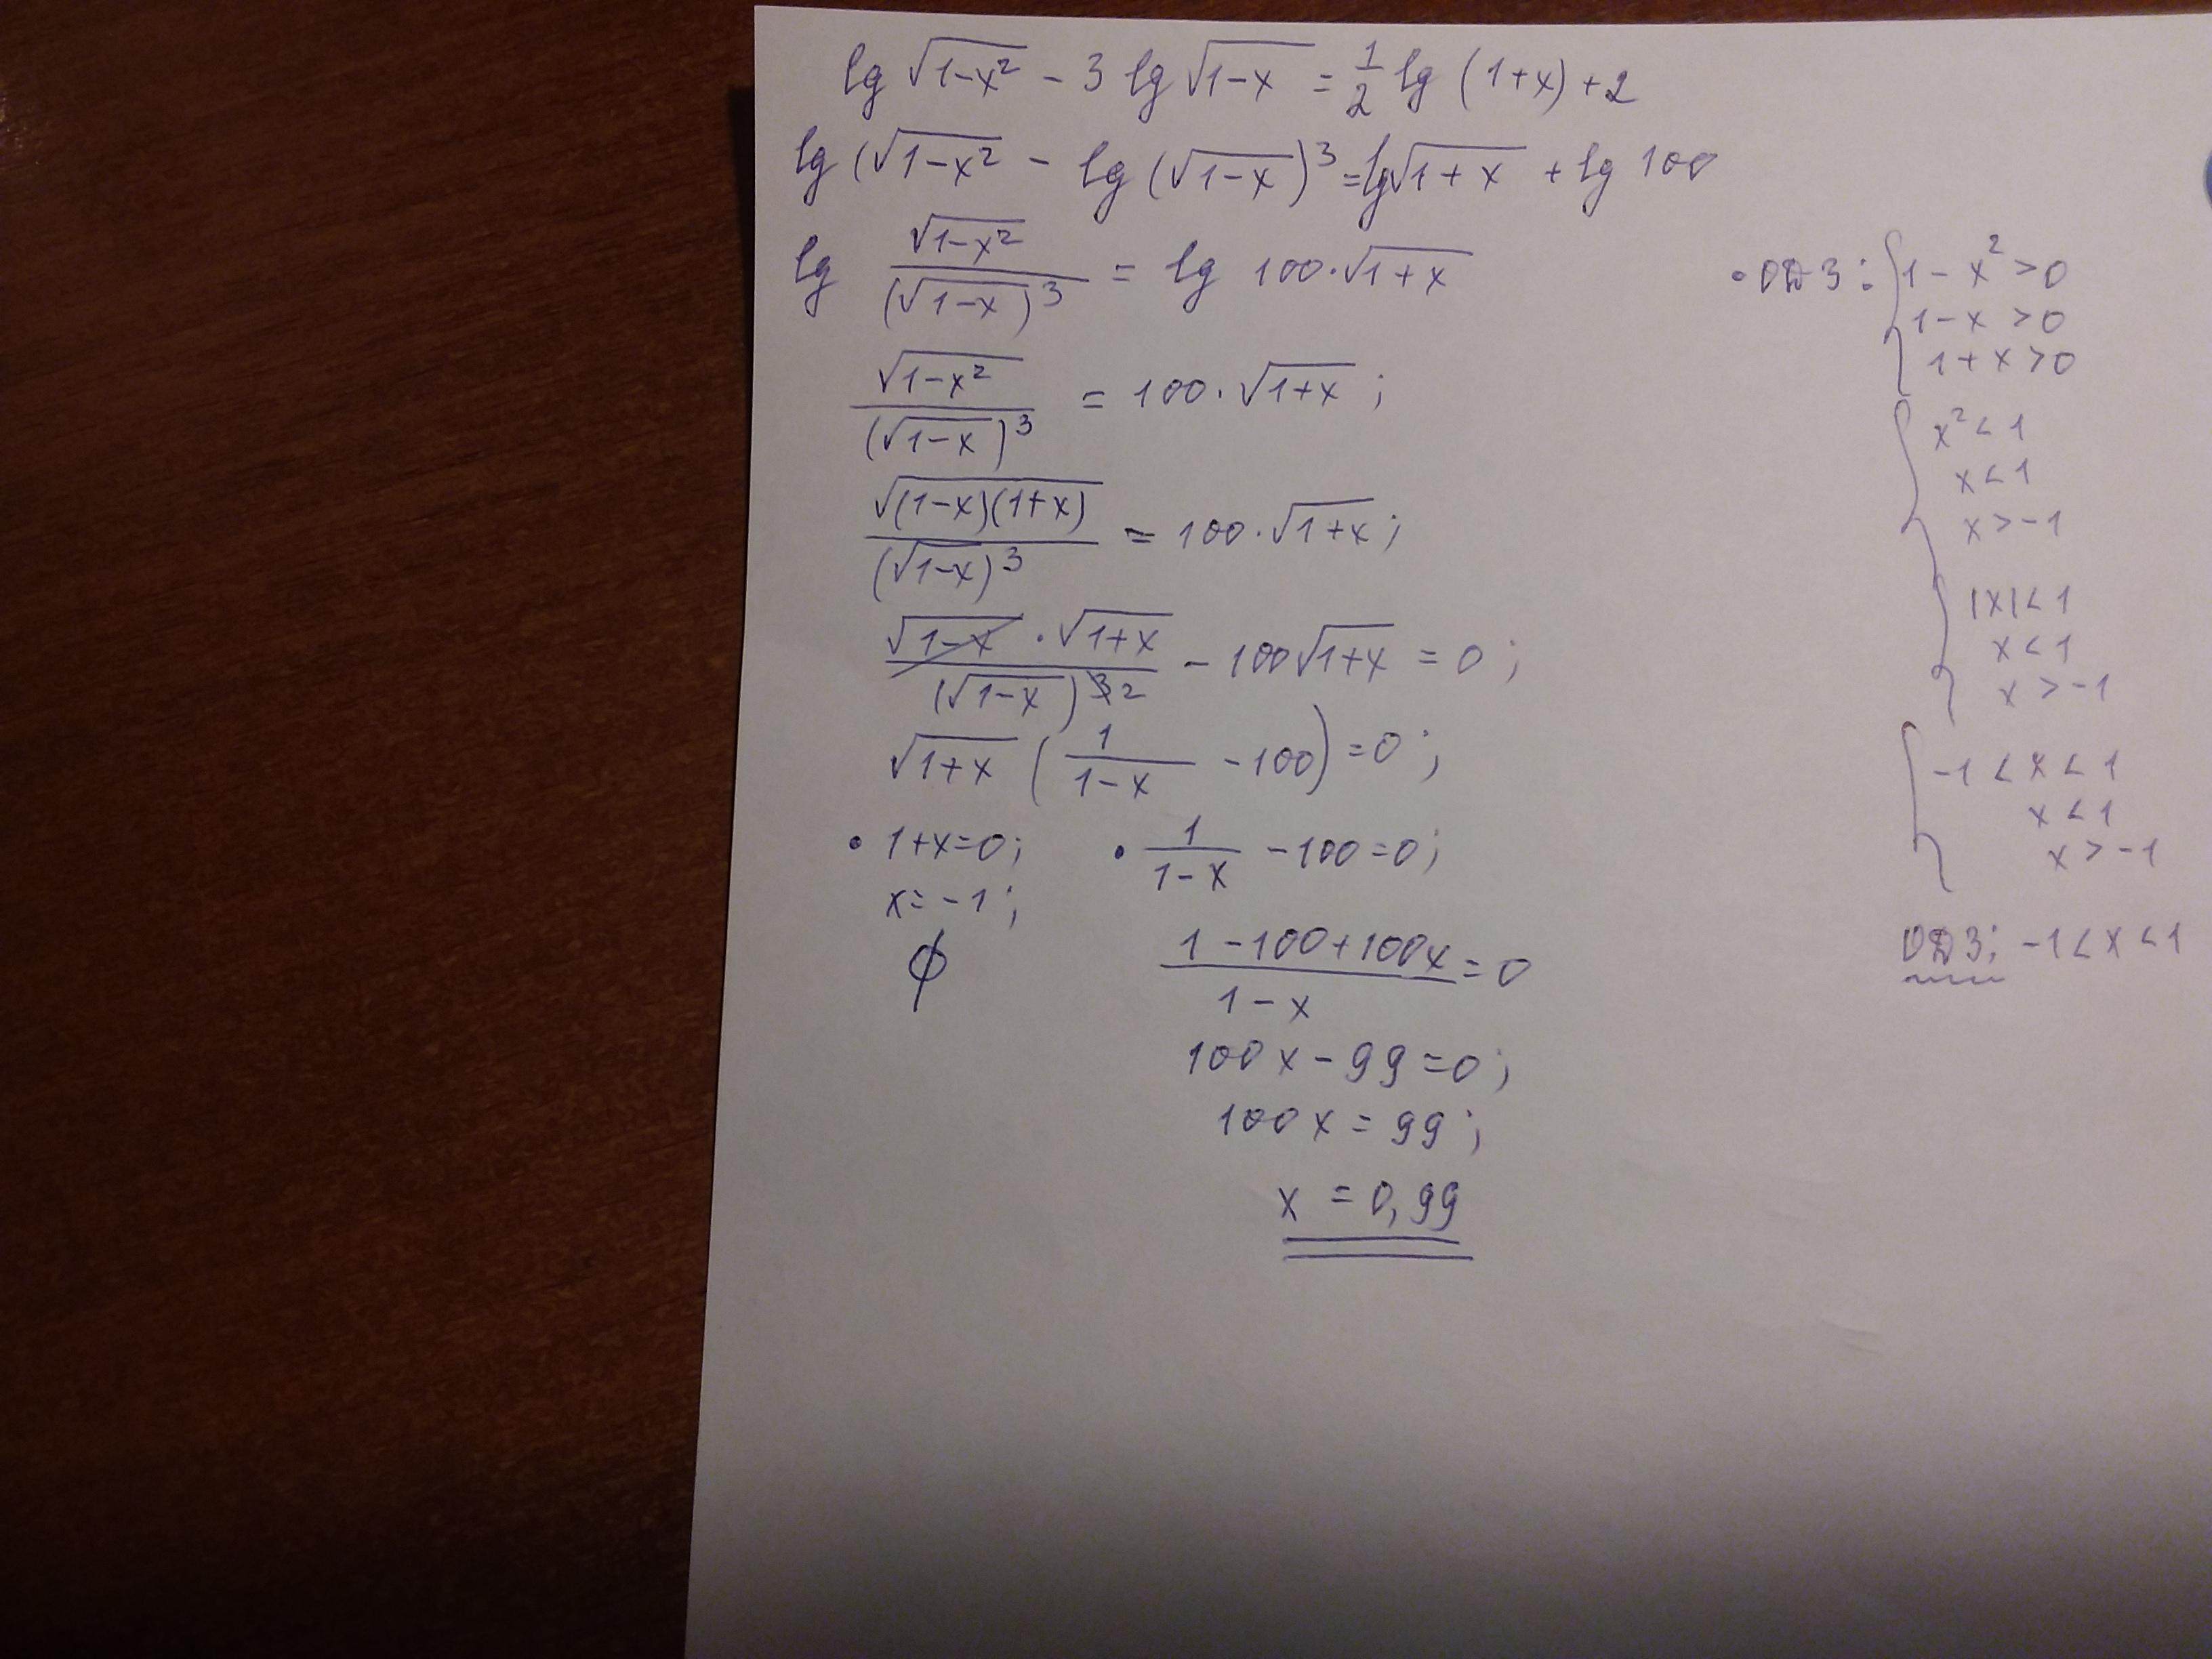 lg √(1-x²) - 3 lg √(1-x) = 1/2 lg (1+x) + 2
lg (√(1-x²) - lg (√(1-x))³ = lg √(1+x) + lg 100
lg √(1-x²) / (√(1-x))³ = lg 100·√(1+x)
√(1-x²) / (√(1-x))³ = 100·√(1+x);
√((1-x)(1+x)) / (√(1-x))³ = 100·√(1+x);
√(1-x)·√(1+x) / (√(1-x))² - 100√(1+x) = 0;
√(1+x) (1/(1-x) - 100) = 0;
• 1+x=0; • 1/(1-x) - 100 = 0;
x = -1;
∅
(1 - 100 + 100x) / (1-x) = 0
100x - 99 = 0;
100x = 99;
x = 0,99
• ОДЗ: { 1 - x² > 0
1 - x > 0
1 + x > 0
{ x² < 1
x < 1
x > -1
{ |x| < 1
x < 1
x > -1
{ -1 < x < 1
x < 1
x > -1
ОДЗ: -1 < x < 1